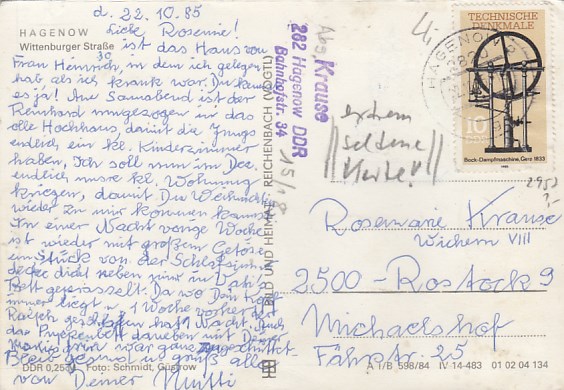 d. 22.10.85
Liebe Rosemie!
HAGENOW
Wittenburger Straße
30
ist das Haus von
Frau Heinrich, in dem ich gelegen
hab als ich krank war. Du kennst
es ja! Am Sonnabend ist der
Reinhard umgezogen in das
olle Hochhaus, damit die Jungs
endlich ein kl. Kinderzimmer
haben. Ich soll nun im Dez.
endlich unsre kl. Wohnung
kriegen, damit Du Weihnacht
wieder zu mir kommen kannst
In einer Nacht vorige Woche
ist wieder mit großem Getöse
ein Stück von der Schlafzimmer
decke dicht neben mir in
Bett geprasselt. Da wo Dein Kopf
immer liegt. 1 Woche vorher
geschlafen, hat Wacht. Auch
das daneben mit Dreck
war ganz
Bleib gesund u. grüß alle
von Deiner Mutti
DDR 0,25 Foto: Schmidt, Güstrow
BILD UND HEIMAT · REICHENBACH (VOGTL)
15/18
Abs.
Krause
282 Hagenow DDR
Bahnhofstr. 34
extrem
seltene
Karte!!
TECHNISCHE
DENKMALE
HAGENOW
10
DDR
Bock-Dampfmaschine, Gera 1833
1985
2953
Rosemarie Krause
Wichern VIII
2500-Rostock 9
Michaelshof
Fährstr. 25
A 1/B 598/84 IV-14-483 01 02 04 134